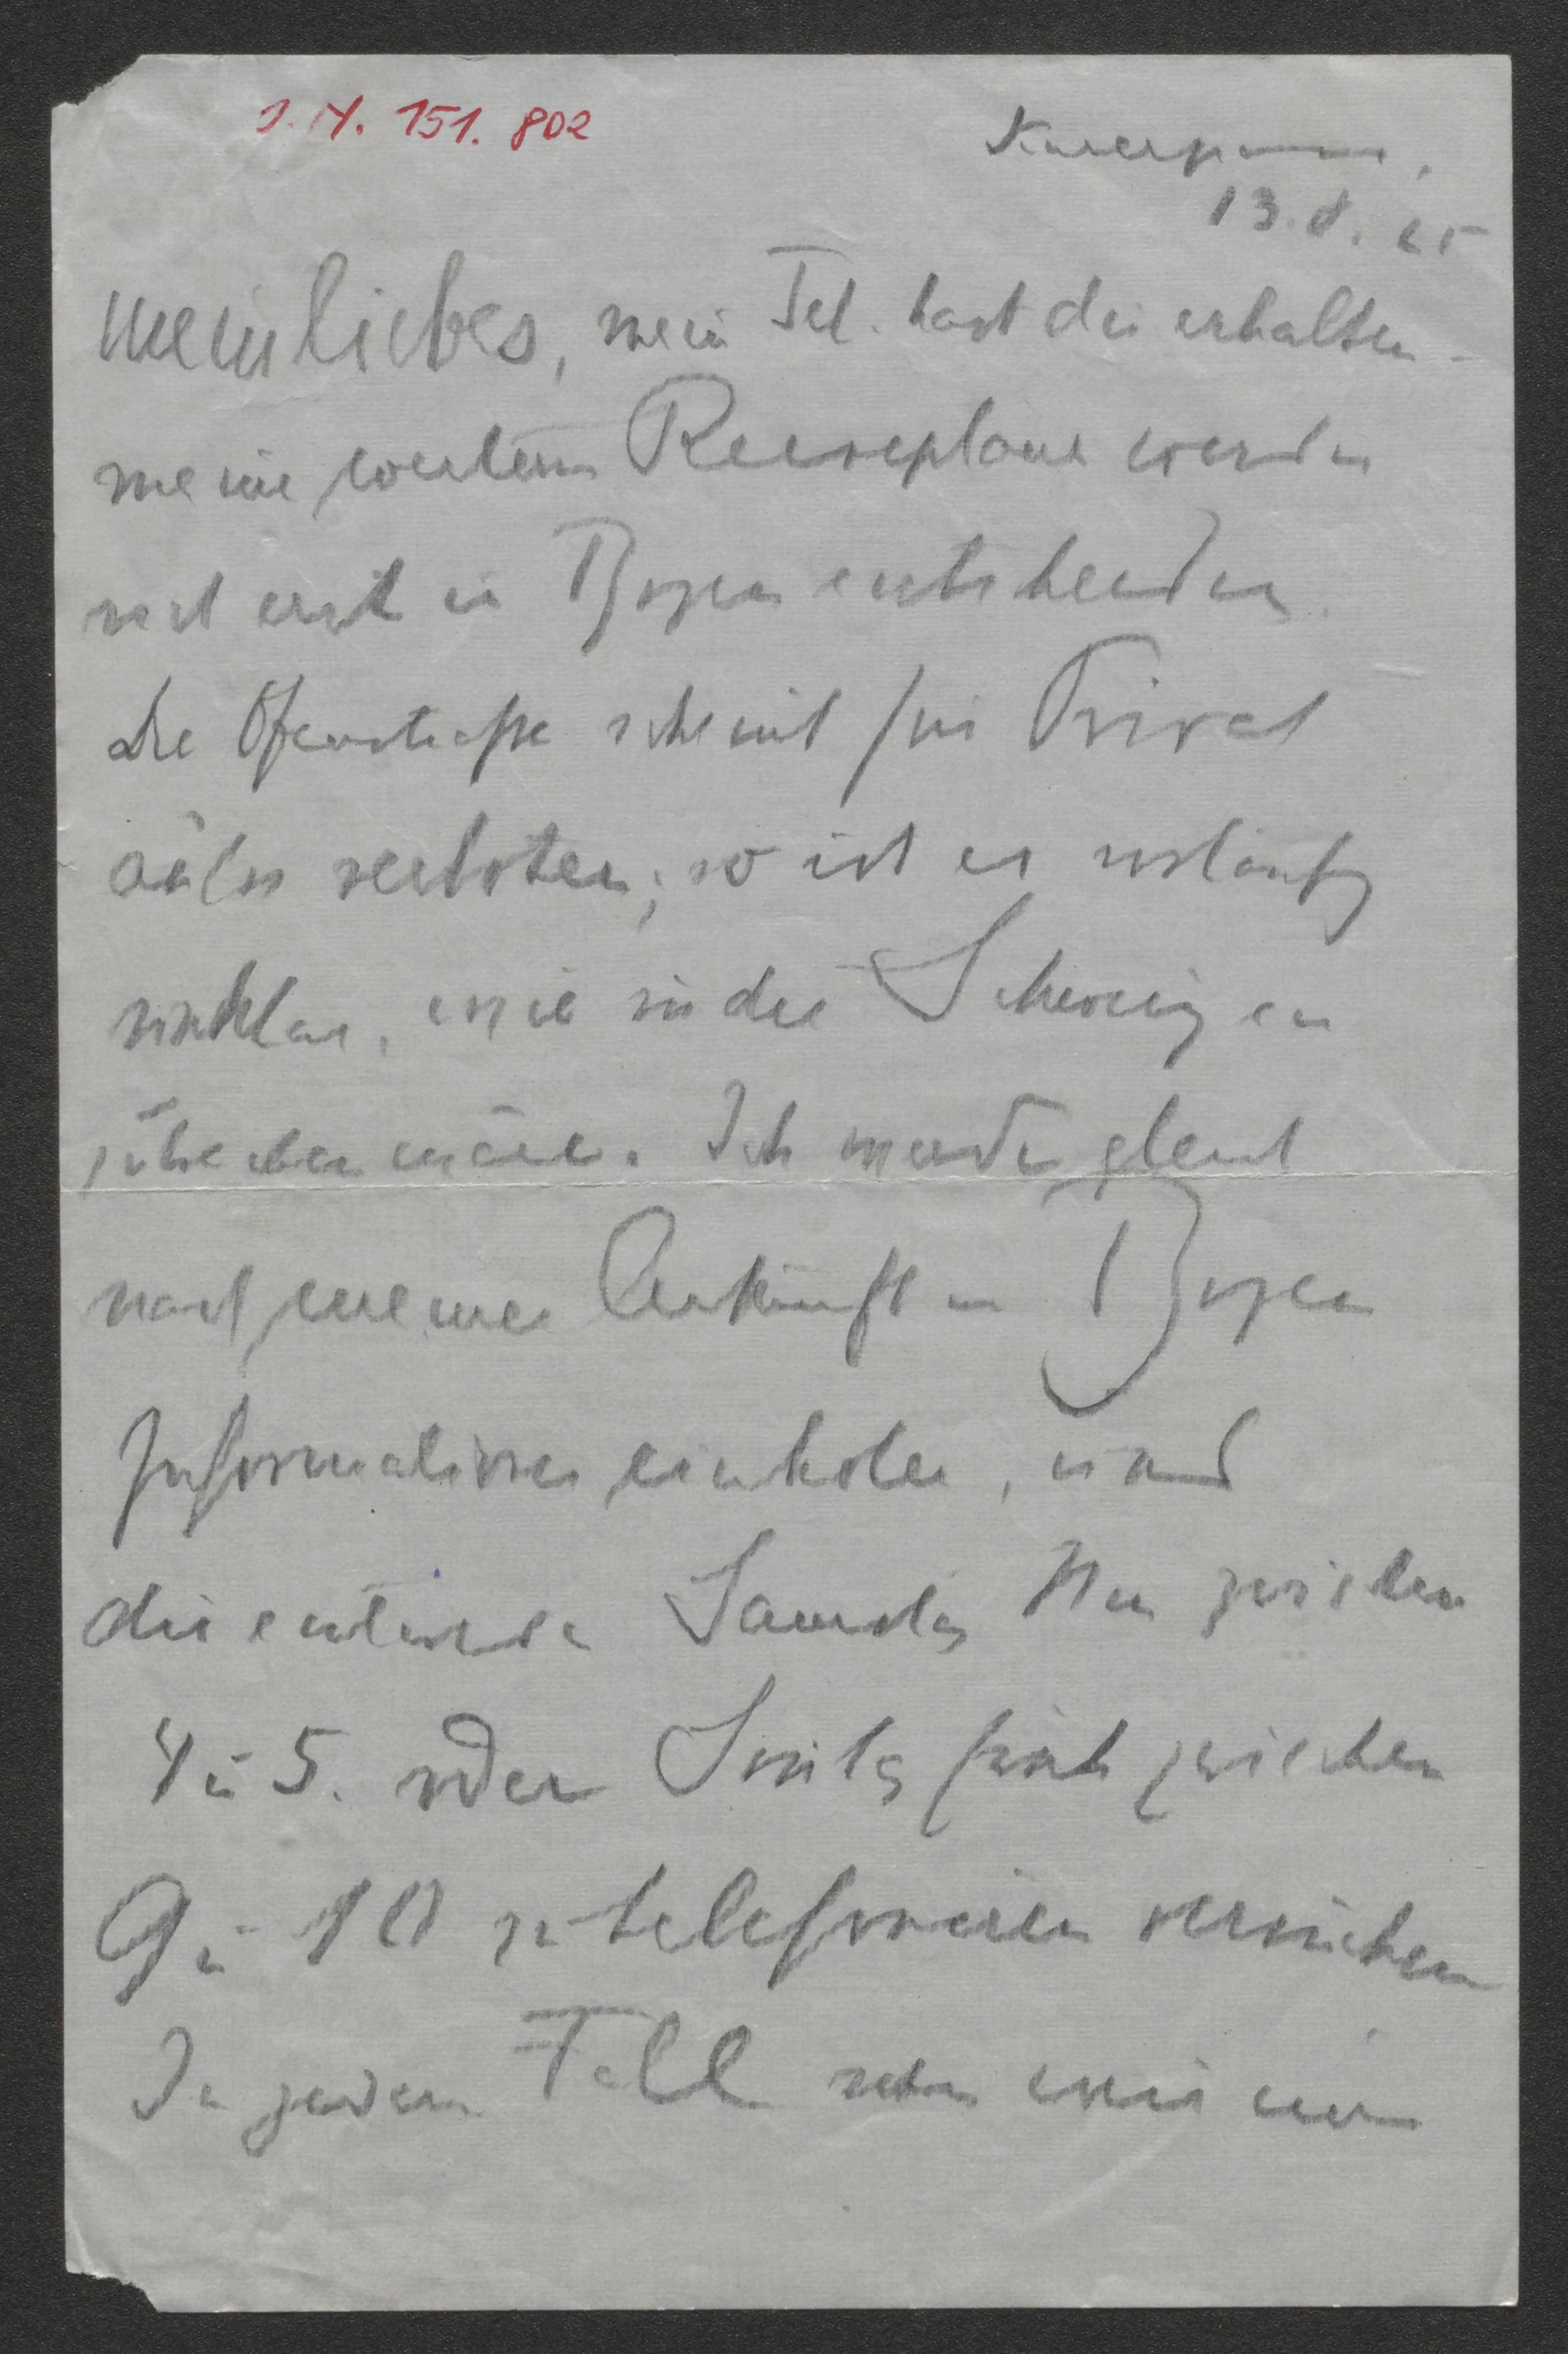 J. N. 151. 802
Karerpass,
13.8.25
mein liebes, mein Tel. hast du erhalten -
meine weitern Reisepläne werden
sich erst in Bozen entscheiden.
die Ofenstraße scheint für Privat
autos verboten; so ist es vorläufig
unklar, wie in die Schweiz am
wäre. Ich werde gleich
nach meiner Ankunft in Bozen
Informationen einholen, und
dir entweder Samstag Nm zwischen
4 u 5. oder Sonntag früh zwischen
9 u 10 zu telefoniren versuchen
In jedem Fall sehen wir uns